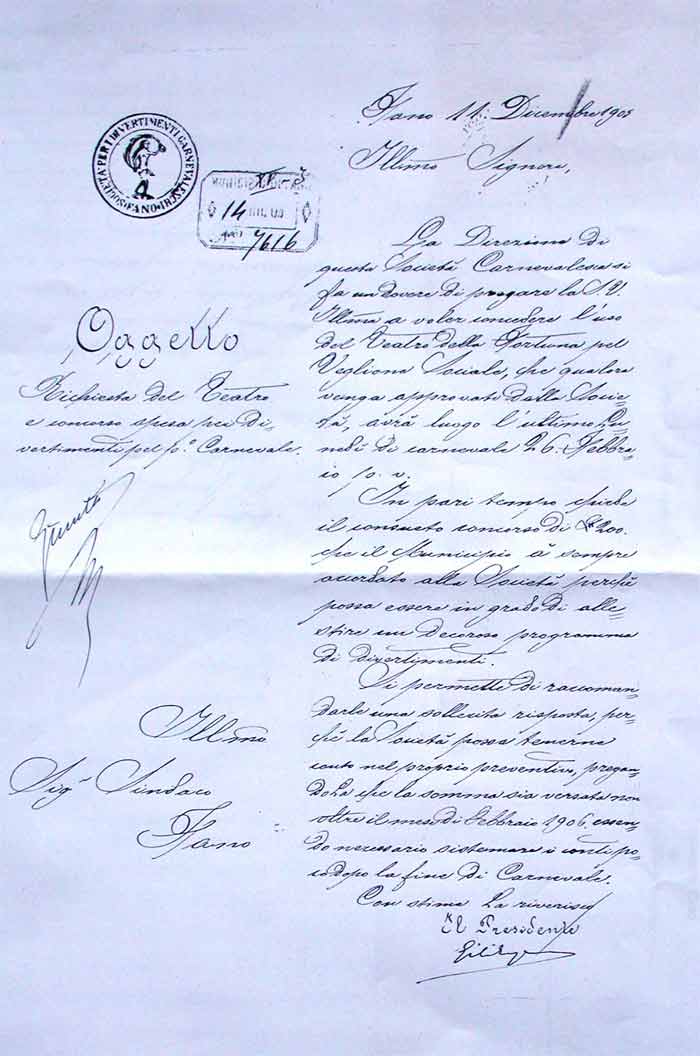 Fano 11. Dicembre 1905
SOCIETÀ PER I DIVERTIMENTI CARNEVALESCHI
FANO
14
7616
Illmo Signore,
La Direzione di
questa Società Carnevalesca si
fa un dovere di pregare la S. V.
Illma a voler concedere l'uso
del Teatro della Fortuna pel
Veglione Sociale, che qualora
venga approvato dalla Socie-
tà, avrà luogo l'ultimo Lu-
nedì di carnevale 26. Febbra-
io p. v.
Oggetto
Richiesta del Teatro
e concorso spesa pei di-
vertimenti pel p.º Carnevale.
In pari tempo chiede
il consueto concorso di £200.
che il Municipio à sempre
accordato alla Società perchè
possa essere in grado di alle-
stire un decoroso programma
di divertimenti.
Si permette di raccoman-
darle una sollecita risposta, per-
chè la Società possa tenerne
conto nel proprio preventivo, pregan-
doLa che la somma sia versata non
oltre il mese di Febbraio 1906. essen-
do necessario sistemare i conti po-
co dopo la fine di Carnevale.
Con stima La riverisco
Il Presidente
Illmo
Sigr Sindaco
Fano